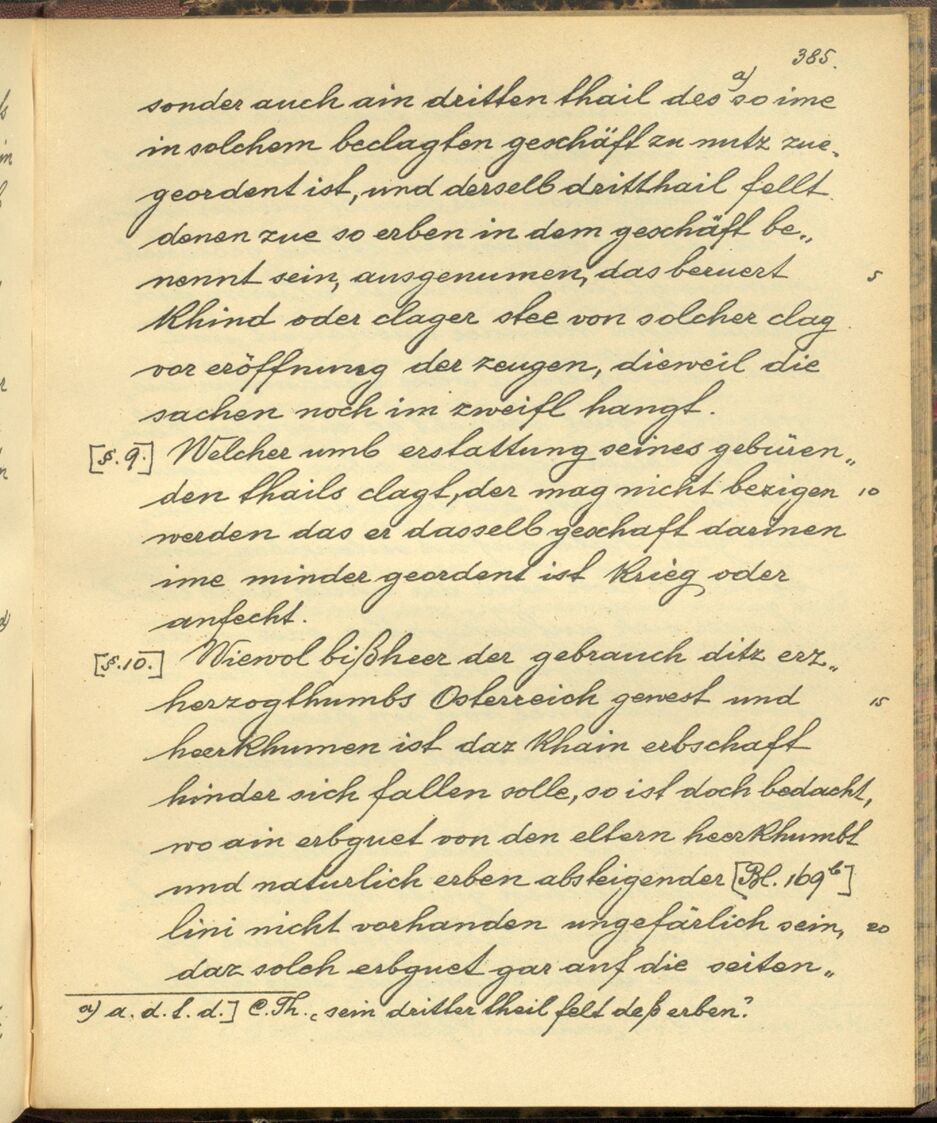 385.
sonder auch ain dritten thail des a) so ime
in solchem beclagten geschäft zu nutz zue„
geordent ist, und derselb dritthail fellt
denen zue so erben in dem geschäft be„
nennt sein, ausgenumen, das beruert 5
Khind oder clager stee von solcher clag
vor eröffnung der zeugen, dieweil die
sachen noch im zweifl hangt.
[§. 9.] Welcher umb erstattung seines gebüren„
den thails clagt, der mag nicht bezigen 10
werden das er dasselb geschaft darinen
ime minder geordent ist Krieg oder
anfecht.
[§. 10.] Wiewol bißheer der gebrauch ditz erz„
herzogthumbs Osterreich gewest und 15
heerkhumen ist daz Khain erbschaft
hinder sich fallen solle, so ist doch bedacht,
wo ain erbguet von den eltern heerkhumbt
und naturlich erben absteigender [Bl. 169b]
lini nicht vorhanden ungefärlich sein, 20
daz solch erbguet gar auf die seiten„
a) a. d. t. d.] C. Th. „sein dritter theil felt deß erben.“